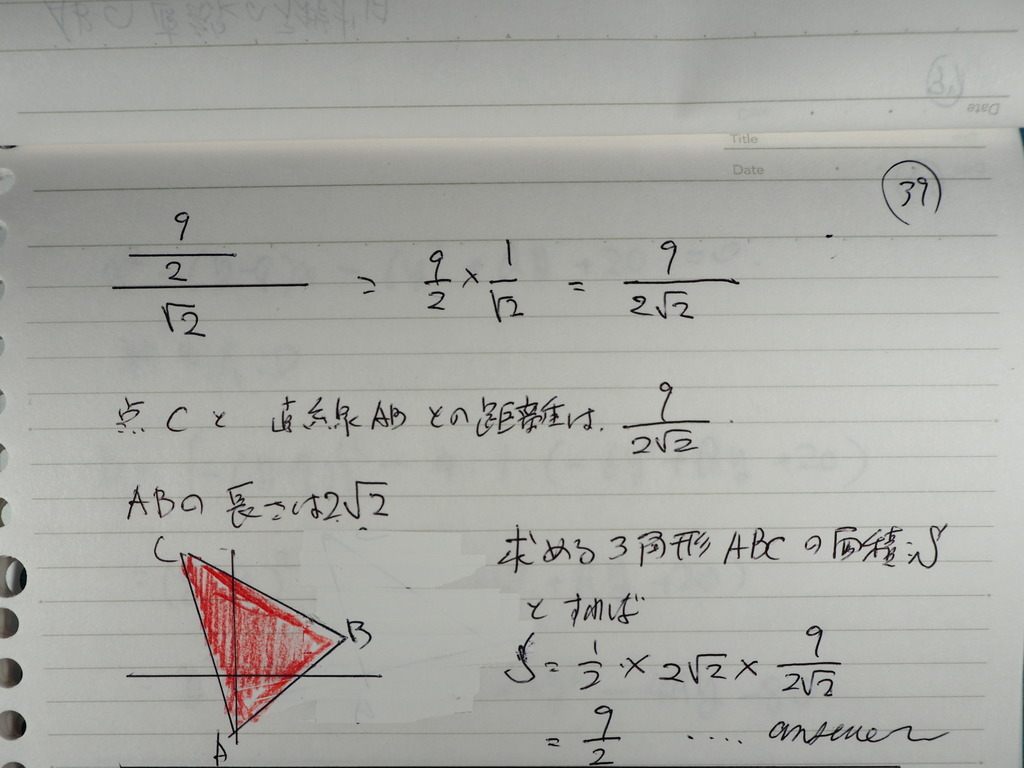 Date
Title
Date
39
9/2/√2 = 9/2 × 1/√2 = 9/2√2
点Cと直線ABとの距離は、9/2√2
ABの長さは2√2
C
B
A
求める3角形ABCの面積:S
とすれば
S = 1/2 × 2√2 × 9/2√2
= 9/2 .... answer